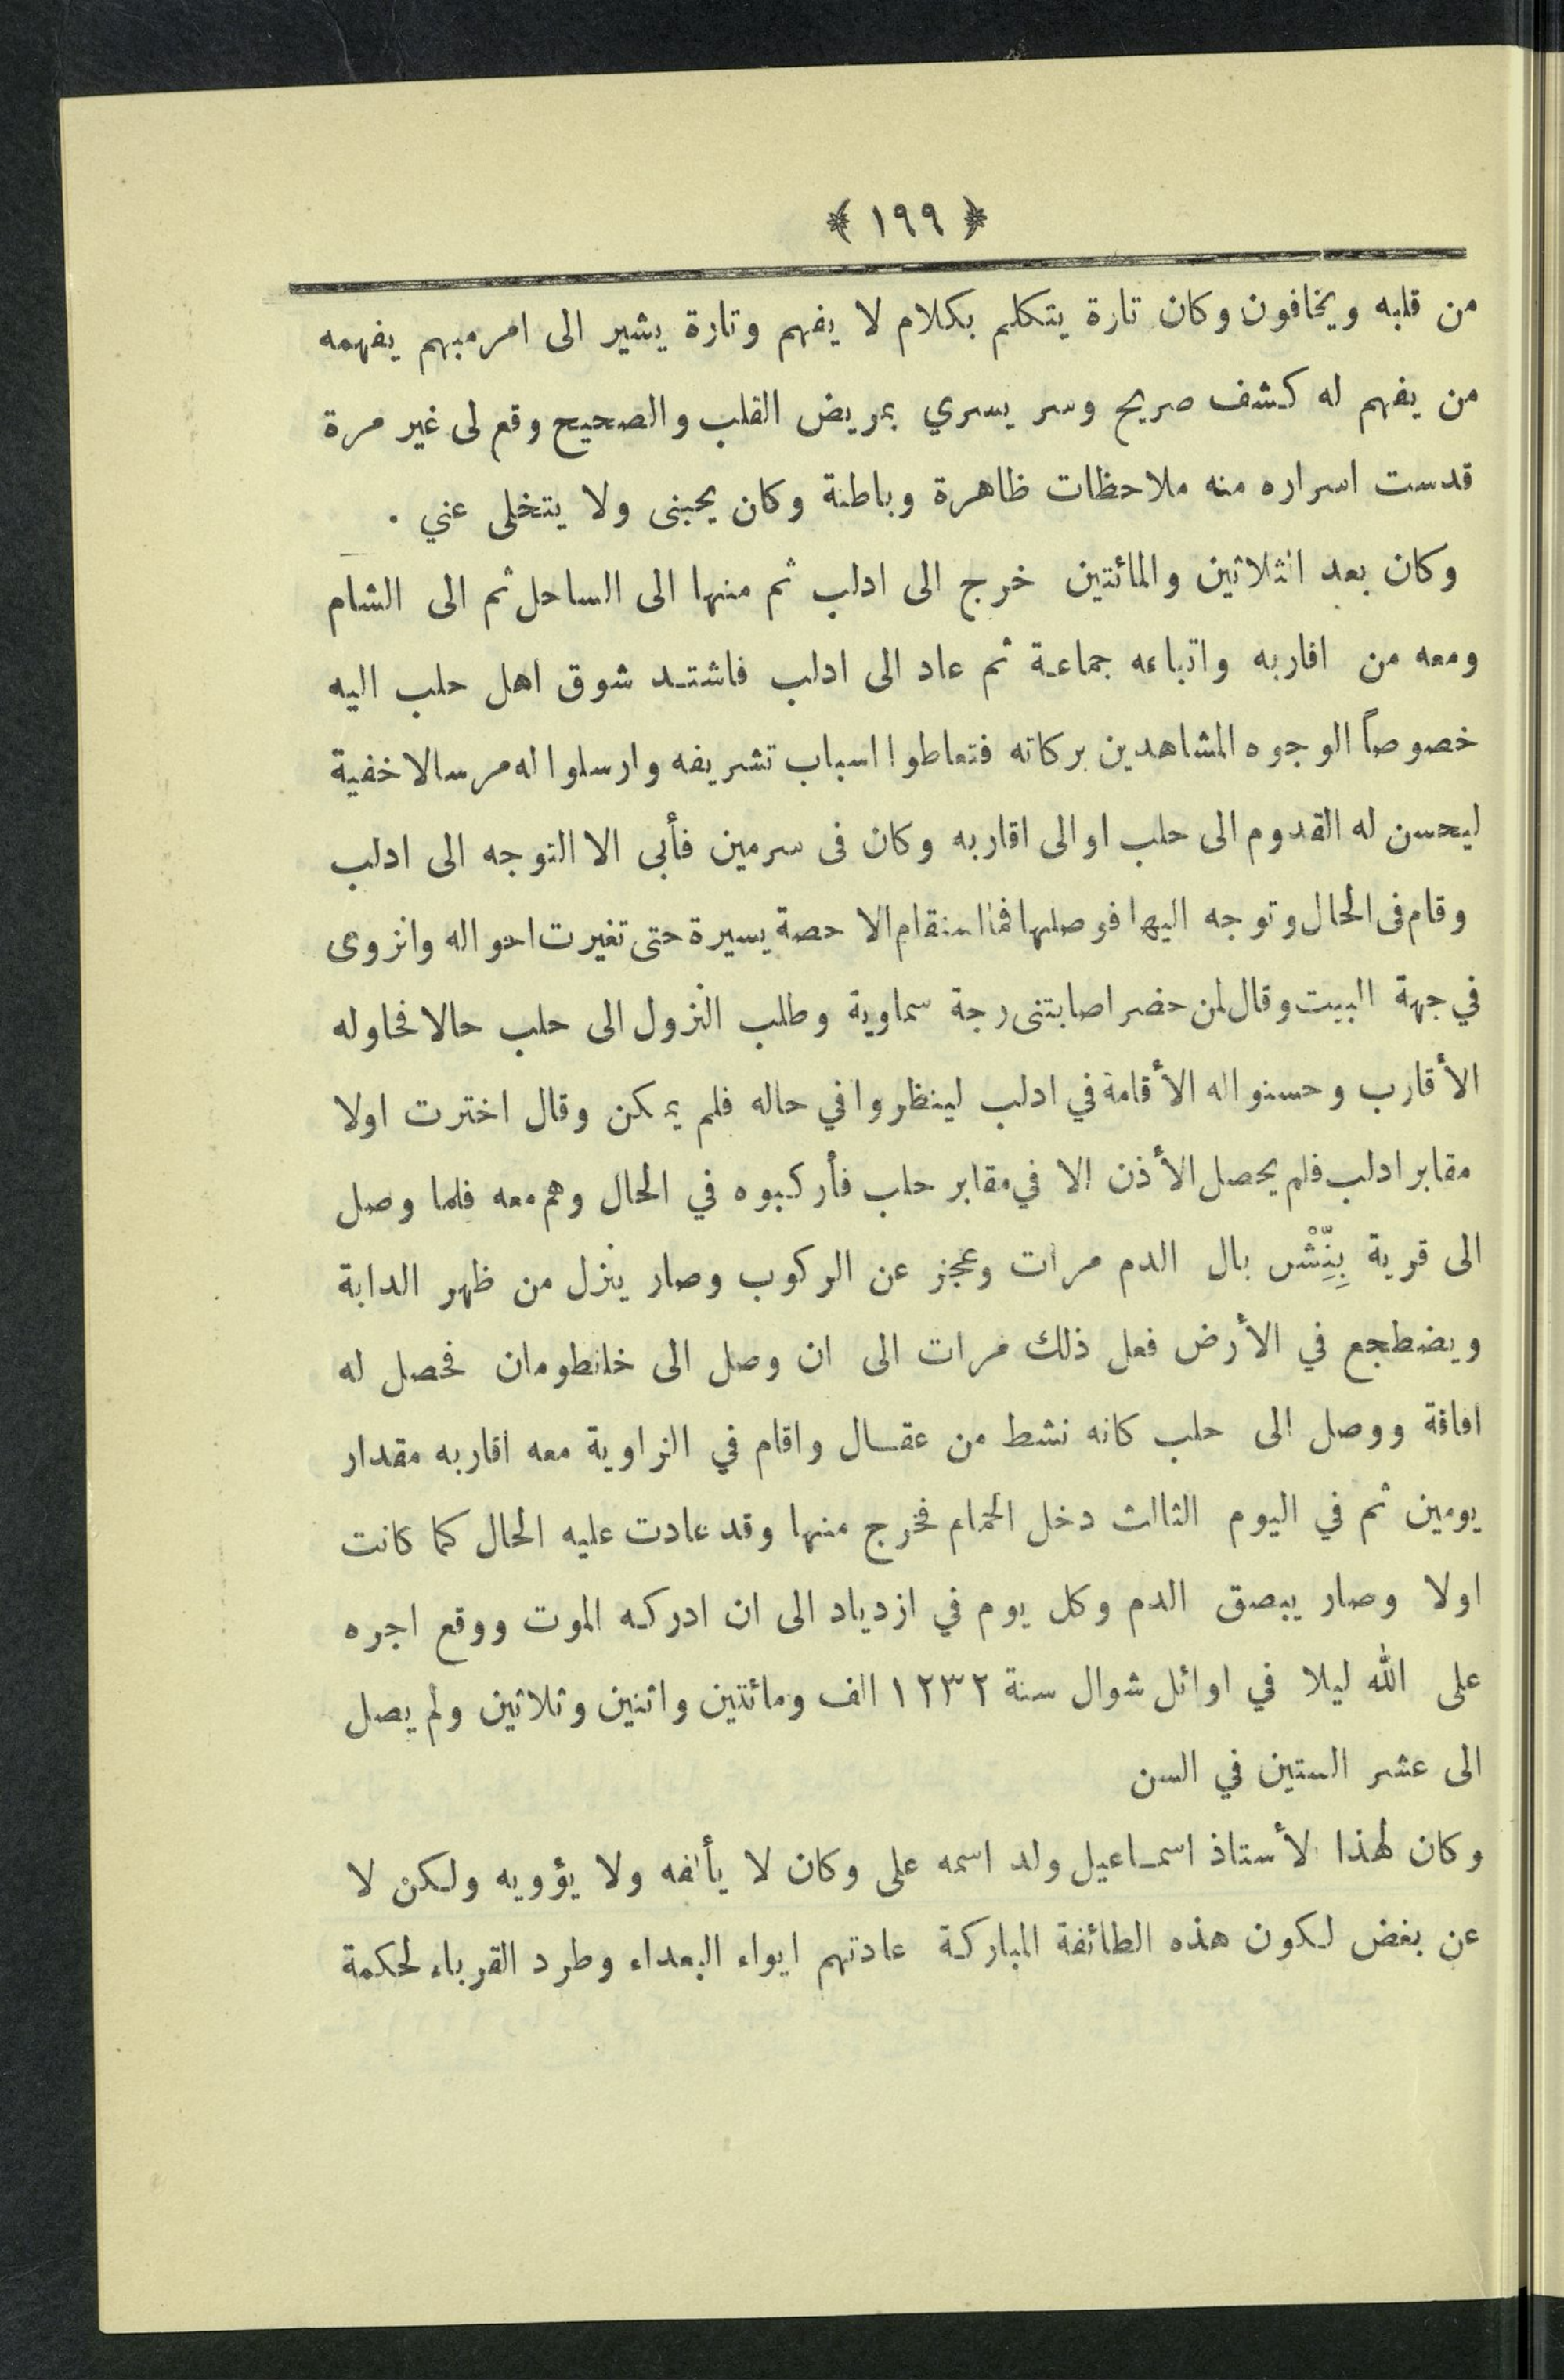 ﴿ ١٩٩ ﴾
من قلبه ويخافون وكان تارة يتكلم بكلام لا يفهم وتارة يشير الى امر مبهم يفهمه
من يفهم له كشف صريح وسر يسري بمريض القلب والصحيح وقع لى غير مرة
قدست اسراره منه ملاحظات ظاهرة وباطنة وكان يحبنى ولا يتخلى عني .
وكان بعد الثلاثين والمائتين خرج الى ادلب ثم منها الى الساحل ثم الى الشام
ومعه من اقاربه واتباعه جماعة ثم عاد الى ادلب فاشتد شوق اهل حلب اليه
خصوصاً الوجوه المشاهدين بركاته فتعاطوا اسباب تشريفه وارسلوا له مرسالا خفية
ليحسن له القدوم الى حلب او الى اقاربه وكان فى سرمين فأبى الا التوجه الى ادلب
وقام فى الحال وتوجه اليها فوصلها فما استقام الا حصة يسيرة حتى تغيرت احواله وانزوى
في جهة البيت وقال لمن حضر اصابتنى رجة سماوية وطلب النزول الى حلب حالا فحاوله
الأقارب وحسنوا له الأقامة في ادلب لينظروا في حاله فلم يمكن وقال اخترت اولا
مقابر ادلب فلم يحصل الأذن الا في مقابر حلب فأركبوه في الحال وهم معه فلما وصل
الى قرية بِنِّشْ بال الدم مرات وعجز عن الركوب وصار ينزل من ظهر الدابة
ويضطجع في الأرض فعل ذلك مرات الى ان وصل الى خانطومان فحصل له
افاقة ووصل الى حلب كانه نشط من عقال واقام في الزاوية معه اقاربه مقدار
يومين ثم في اليوم الثالث دخل الحمام فخرج منها وقد عادت عليه الحال كما كانت
اولا وصار يبصق الدم وكل يوم في ازدياد الى ان ادركه الموت ووقع اجره
على الله ليلا في اوائل شوال سنة ١٢٣٢ الف ومائتين واثنين وثلاثين ولم يصل
الى عشر الستين في السن
وكان لهذا الأستاذ اسماعيل ولد اسمه على وكان لا يألفه ولا يؤويه ولكن لا
عن بغض لكون هذه الطائفة المباركة عادتهم ايواء البعداء وطرد القرباء لحكمة